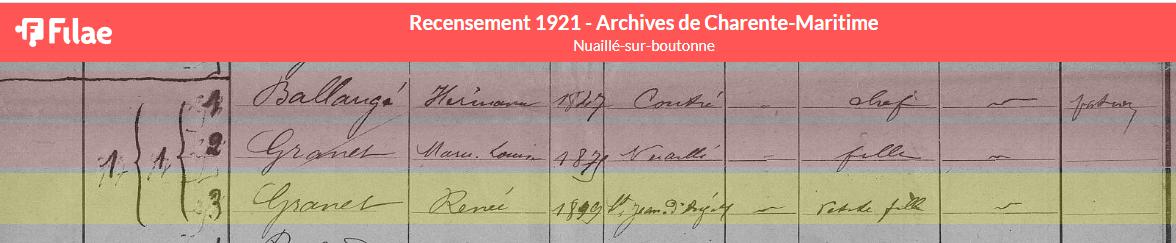 Filae
Recensement 1921 - Archives de Charente-Maritime
Nuaillé-sur-boutonne
1 Ballangé 1847 Contré - chef -
1 1 2 Granet Marie Louise 1875 Nuaillé - fille -
3 Granet Renée 1899 St Jean d'Angély - petite fille -